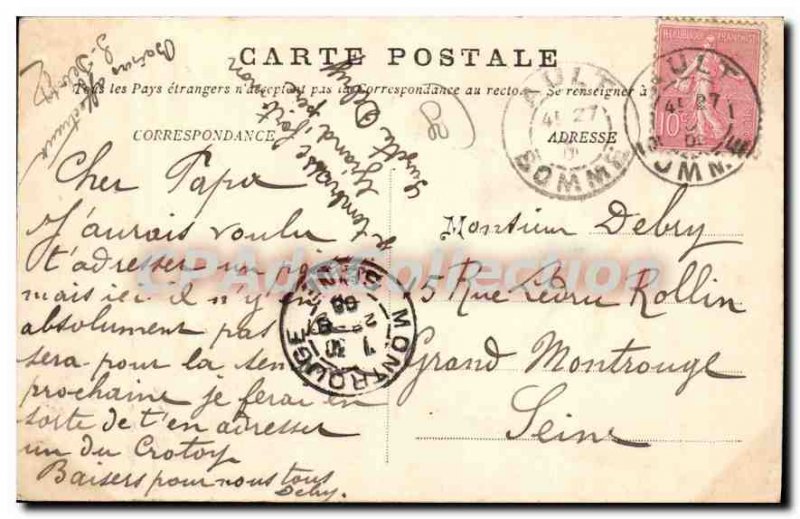 CARTE POSTALE
Tous les Pays étrangers n'acceptent pas la Correspondance au recto. Se renseigner à
CORRESPONDANCE
ADRESSE
Cher Papa
J'aurais voulu
t'adresser un
mais ici il n'y en
absolument pas
sera pour la
prochaine je ferai en
sorte de t'en adresser
un du Crotoy
Baisers pour nous tous
Debry.
Je t'embrasse
Suzette Debry
Baisers affectueux
Monsieur Debry
15 Rue Ledru Rollin
Grand Montrouge
Seine
REPUBLIQUE FRANÇAISE
10
AULT
27
SOMME
AULT
27
SOMME
MONTROUGE
SEINE
CPA De Collection